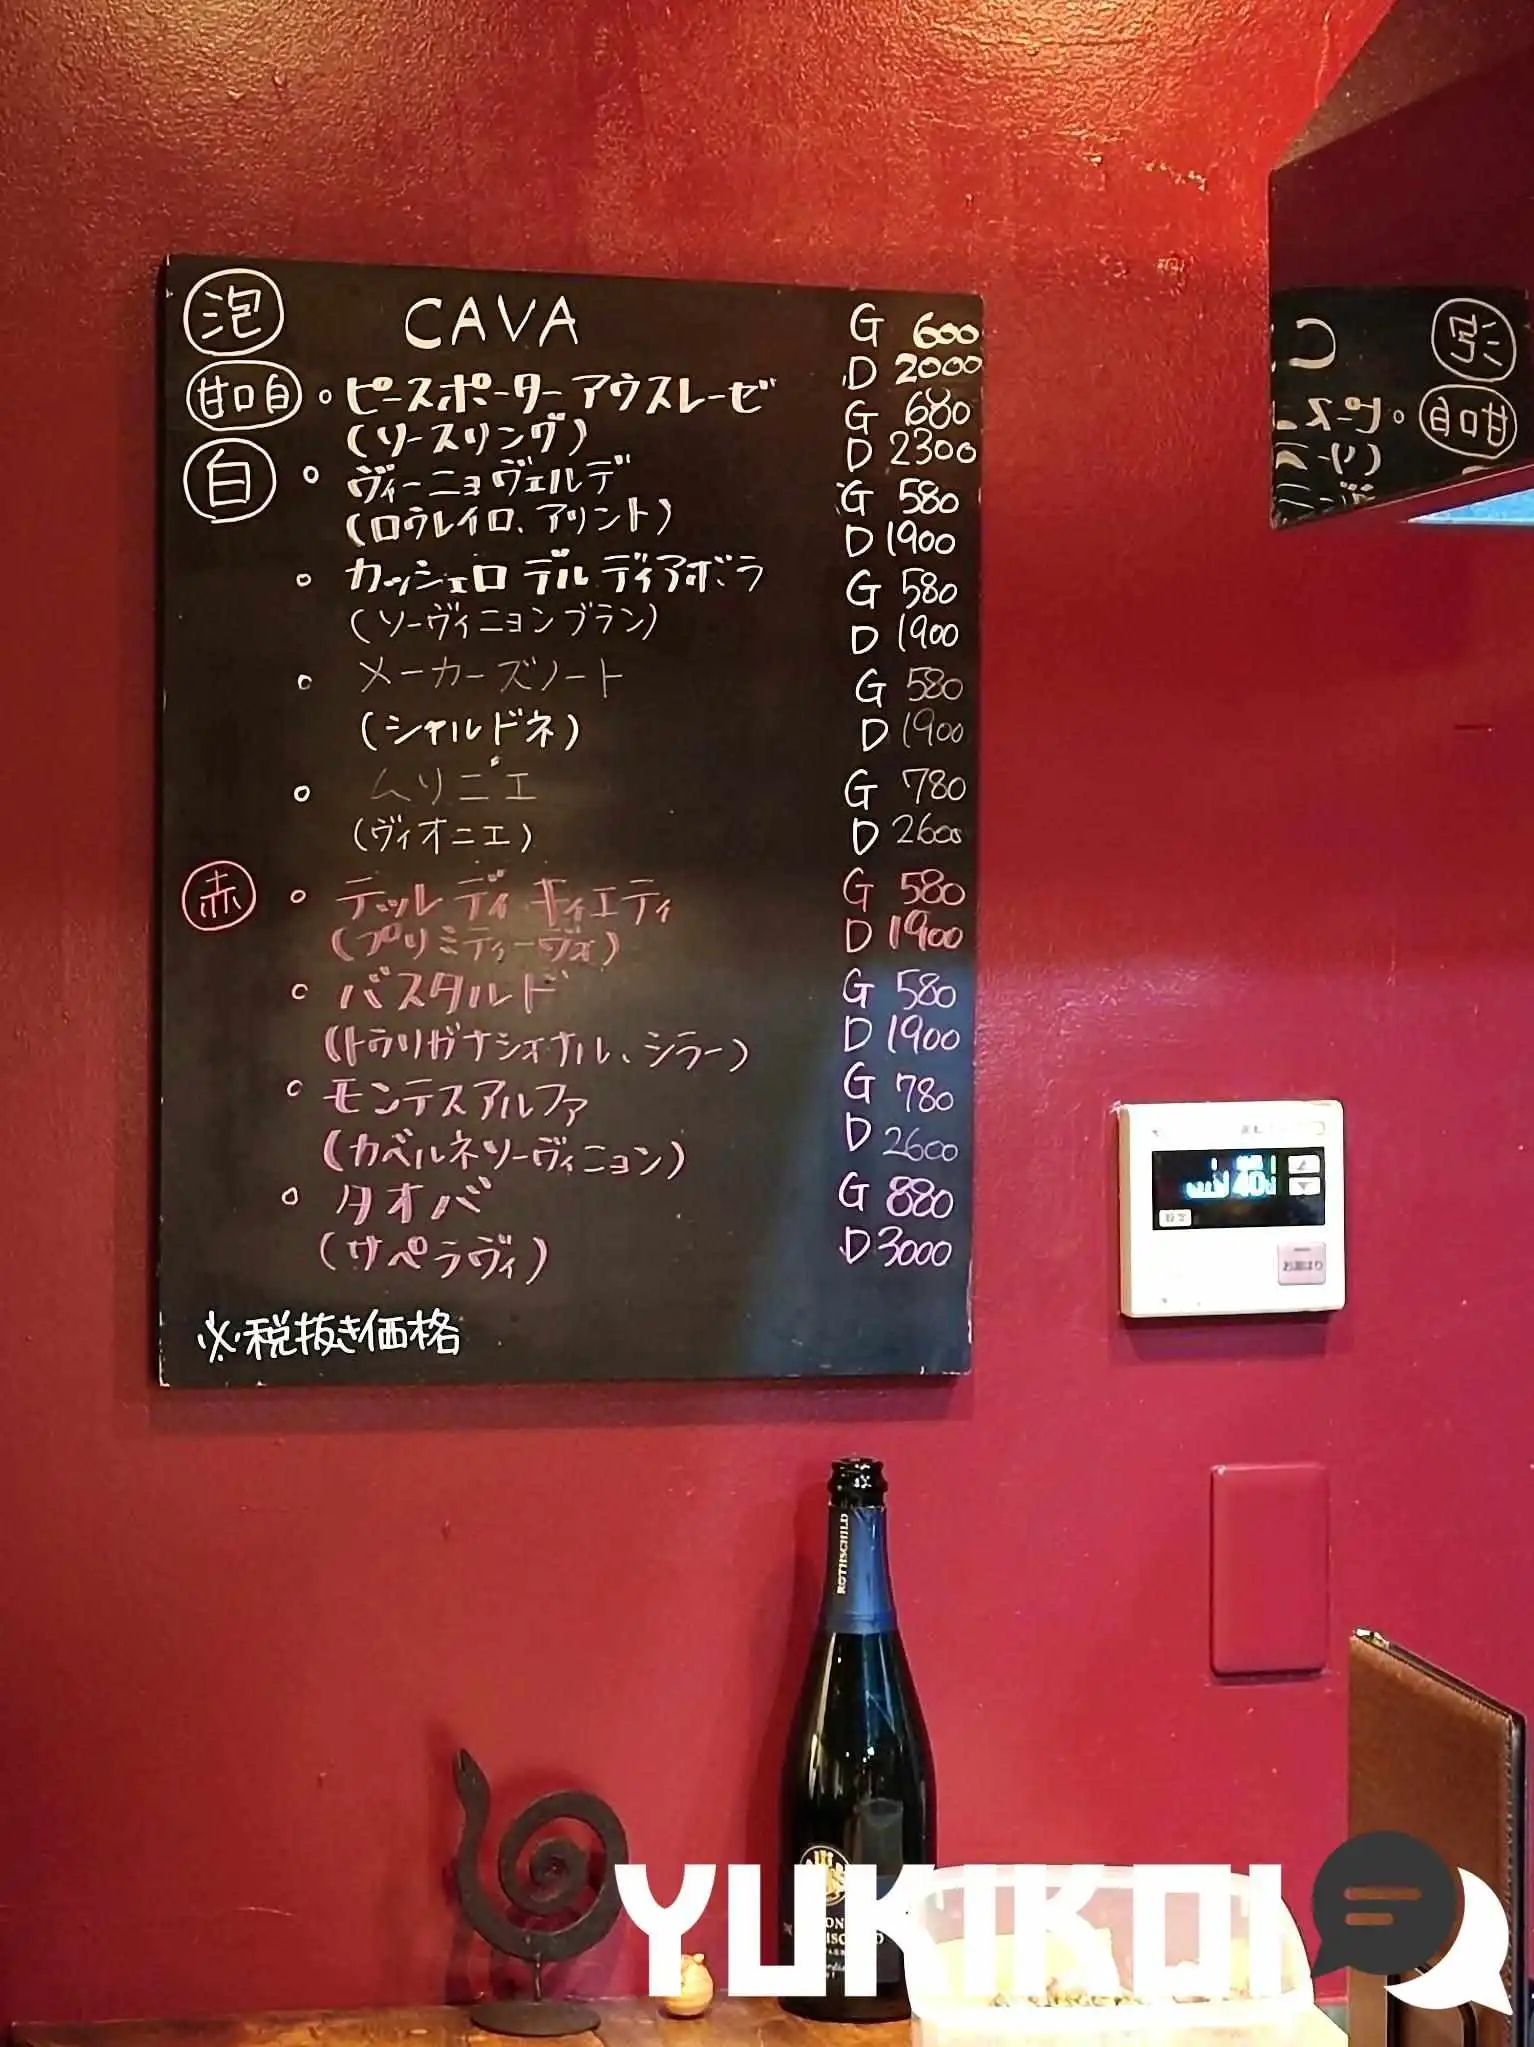 泡 CAVA G 600
D 2000
甘口白 ○ ピースポーター アウスレーゼ G 680
(リースリング) D 2300
白 ○ ヴィーニョ ヴェルデ G 580
(ロウレイロ、アリント) D 1900
○ カッシェロ デル ディアボラ G 580
(ソーヴィニョンブラン) D 1900
○ メーカーズノート G 580
(シャルドネ) D 1900
○ ムリニエ G 780
(ヴィオニエ) D 2600
赤 ○ テッレ ディ キィエティ G 580
(プリミティーヴォ) D 1900
○ バスタルド G 580
(トウリガナショナル、シラー) D 1900
○ モンテスアルファ G 780
(カベルネソーヴィニョン) D 2600
○ タオバ G 880
(サペラヴィ) D 3000
※税抜き価格
40
お湯はり
ROTHSCHILD
YUKIKOI